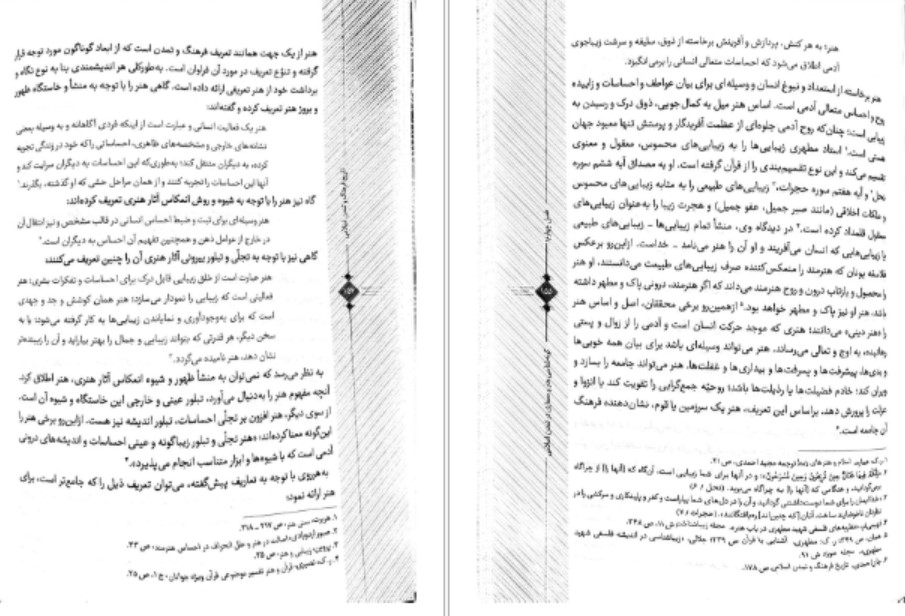 هنر از یک جهت همانند تعریف فرهنگ و تمدن است که از ابعاد گوناگون مورد توجه قرار
گرفته و تنوّع تعریف در مورد آن فراوان است. به‌طورکلی هر اندیشمندی بنا به نوع نگاه و
برداشت خود از هنر تعریفی ارائه داده است. گاهی هنر را با توجه به منشأ و خاستگاه ظهور
و بروز هنر تعریف کرده و گفته‌اند:
هنر یک فعالیت انسانی و عبارت است از اینکه فردی آگاهانه و به وسیله بعضی
نشانه‌های خارجی و مشخصه‌های ظاهری، احساساتی را که خود در زندگی تجربه
کرده، به دیگران منتقل کند؛ به‌طوری‌که این احساسات به دیگران سرایت کند و
آنها این احساسات را تجربه کنند و از همان مراحل حسّی که او گذشته، بگذرند.¹
گاه نیز هنر را با توجه به شیوه و روش انعکاس آثار هنری تعریف کرده‌اند:
هنر وسیله‌ای برای ثبت و ضبط احساس انسانی در قالب مشخص و نیز انتقال آن
در خارج از عوامل ذهن و همچنین تفهیم آن احساس به دیگران است.²
گاهی نیز با توجه به تجلّی و تبلور بیرونی آثار هنری آن را چنین تعریف می‌کنند:
هنر عبارت است از خلق زیبایی قابل درک برای احساسات و تفکرات بشری؛ هنر
فعالیتی است که زیبایی را نمودار می‌سازد؛ هنر همان کوشش و جد و جهدی
است که برای به‌وجودآوری و نمایاندن زیبایی‌ها به کار گرفته می‌شود؛ یا به
سخن دیگر، هر قدرتی که بتواند زیبایی و جمال را بهتر بیاراید و آن را زیبنده‌تر
نشان دهد، هنر نامیده می‌گردد.³
به نظر می‌رسد که نمی‌توان به منشأ ظهور و شیوه انعکاس آثار هنری، هنر اطلاق کرد.
آنچه مفهوم هنر را به‌دنبال می‌آورد، تبلور عینی و خارجی این خاستگاه و شیوه آن است.
از سوی دیگر، هنر افزون بر تجلّی احساسات، تبلور اندیشه نیز هست. ازاین‌رو برخی هنر را
این‌گونه معنا کرده‌اند: «هنر تجلّی و تبلور زیباگونه و عینی احساسات و اندیشه‌های درونی
آدمی است که با شیوه‌ها و ابزار متناسب انجام می‌پذیرد».⁴
به‌هرروی با توجه به تعاریف پیش‌گفته، می‌توان تعریف ذیل را که جامع‌تر است، برای
هنر ارائه نمود:
تاریخ فرهنگ و تمدن اسلامی
هنر؛ به هر کنش، پردازش و آفرینش برخاسته از ذوق، سلیقه و سرشت زیباجوی
آدمی اطلاق می‌شود که احساسات متعالی انسانی را برمی‌انگیزد.
هنر برخاسته از استعداد و نبوغ انسان و وسیله‌ای برای بیان عواطف و احساسات و زاییده
روح و احساس متعالی آدمی است. اساس هنر میل به کمال‌جویی، ذوق درک و رسیدن به
زیبایی است؛ چنان‌که روح آدمی جلوه‌ای از عظمت آفریدگار و پرستش تنها معبود جهان
هستی است.¹ استاد مطهری زیبایی‌ها را به زیبایی‌های محسوس، معقول و معنوی
تقسیم می‌کند و این نوع تقسیم‌بندی را از قرآن گرفته است. او به مصداق آیه ششم سوره
نحل² و آیه هفتم سوره حجرات،³ زیبایی‌های طبیعی را به مثابه زیبایی‌های محسوس
و ملکات اخلاقی (مانند صبر جمیل، عفو جمیل) و هجرت زیبا را به‌عنوان زیبایی‌های
معقول قلمداد کرده است.⁴ در دیدگاه وی، منشأ تمام زیبایی‌ها – زیبایی‌های طبیعی
یا زیبایی‌هایی که انسان می‌آفریند و او آن را هنر می‌نامد – خداست. ازاین‌رو برعکس
فلاسفه یونان که هنرمند را منعکس‌کننده صرف زیبایی‌های طبیعت می‌دانستند، او هنر
را محصول و بازتاب درون و روح هنرمند می‌داند که اگر هنرمند، درونی پاک و مطهر داشته
باشد، هنر او نیز پاک و مطهر خواهد بود.⁵ ازهمین‌رو برخی محققان، اصل و اساس هنر
را «هنر دینی» می‌دانند؛ هنری که موجد حرکت انسان است و آدمی را از زوال و پستی
رهانیده، به اوج و تعالی می‌رساند. هنر می‌تواند وسیله‌ای باشد برای بیان همه خوبی‌ها
و بدی‌ها، پیشرفت‌ها و پسرفت‌ها و بیداری‌ها و غفلت‌ها. هنر می‌تواند جامعه را بسازد و
ویران کند؛ خادم فضیلت‌ها یا رذیلت‌ها باشد؛ روحیّه جمع‌گرایی را تقویت کند یا انزوا و
عزلت را پرورش دهد. براساس این تعریف، هنر یک سرزمین یا قوم، نشان‌دهنده فرهنگ
آن جامعه است.⁶
فصل چهارم: